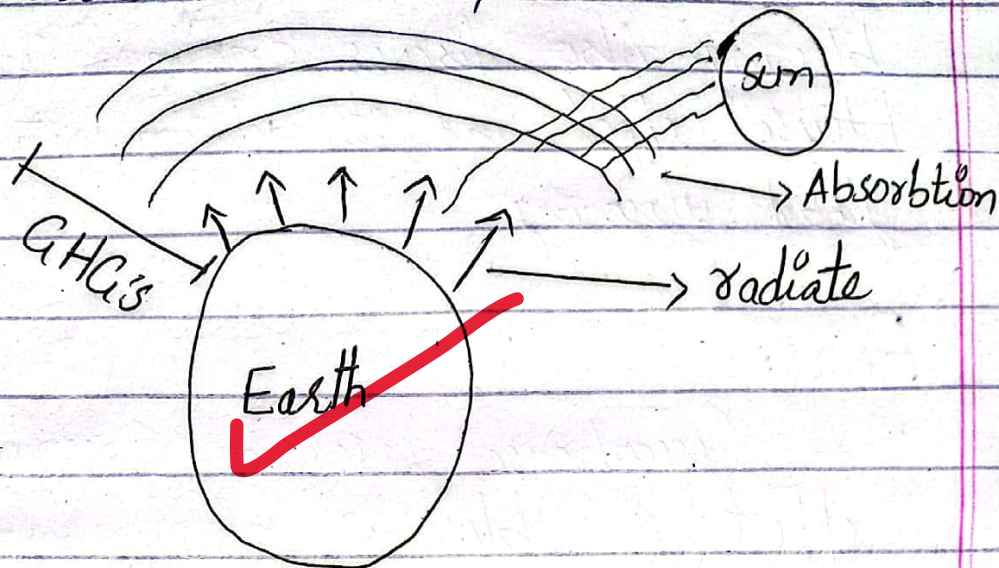 Sun
Absorbtion
GHG's
radiate
Earth